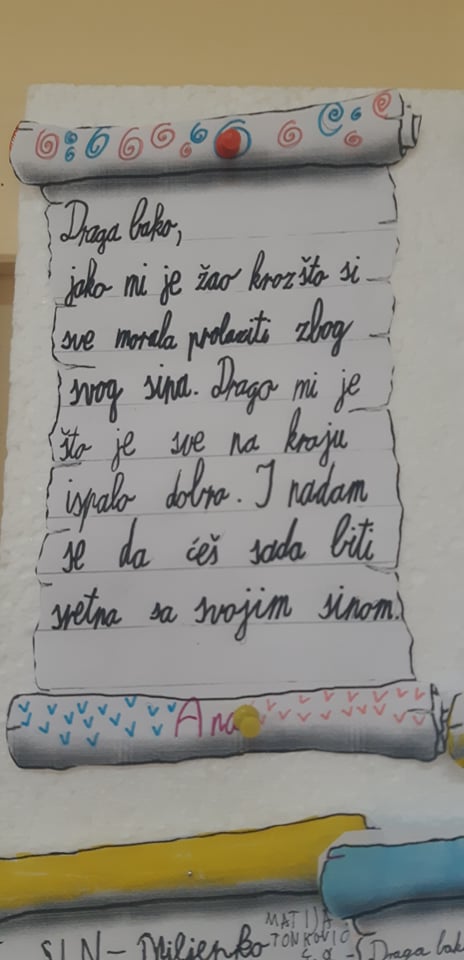 Draga bako,
jako mi je žao krozšto si
sve morala prolaziti zbog
svog sina. Drago mi je
što je sve na kraju
ispalo dobro. I nadam
se da ćeš sada biti
sretna sa svojim sinom.
Ana
MATIJA
TONKOVIĆ
SIN - Miljenko
Draga bako